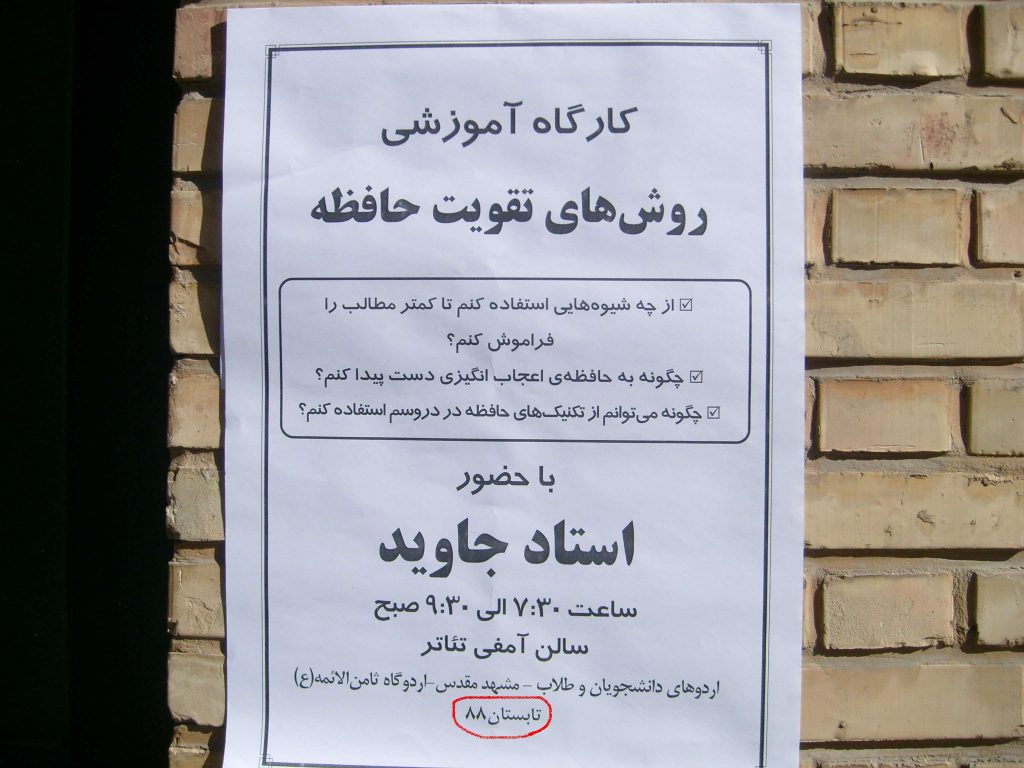 کارگاه آموزشی
روش‌های تقویت حافظه
☑ از چه شیوه‌هایی استفاده کنم تا کمتر مطالب را
فراموش کنم؟
☑ چگونه به حافظه‌ی اعجاب انگیزی دست پیدا کنم؟
☑ چگونه می‌توانم از تکنیک‌های حافظه در دروسم استفاده کنم؟
با حضور
استاد جاوید
ساعت ۷:۳۰ الی ۹:۳۰ صبح
سالن آمفی تئاتر
اردوهای دانشجویان و طلاب – مشهد مقدس-اردوگاه ثامن‌الائمه(ع)
تابستان۸۸